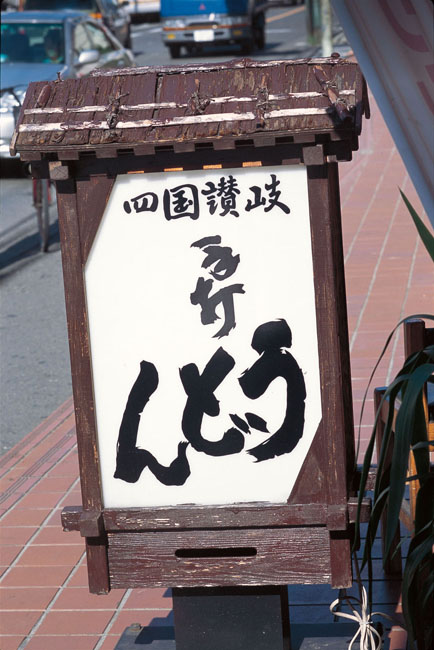 四国讃岐
手打
うどん